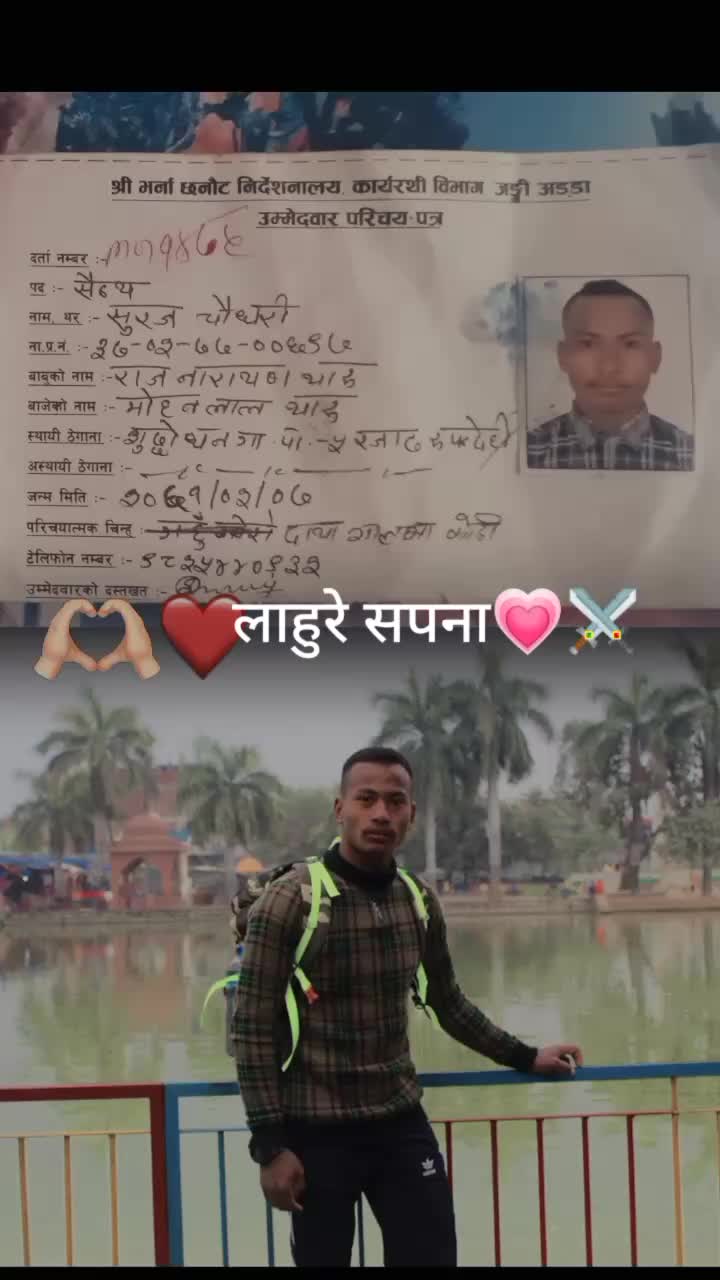 श्री भर्ना छनौट निर्देशनालय, कार्यरथी विभाग जङ्गी अड्डा
उम्मेदवार परिचय-पत्र
दर्ता नम्बर :-
पद :- सैन्य
नाम, थर :- सुरज चौधरी
ना.प्र.नं. :-
बाबुको नाम :- राज नारायण थारु
बाजेको नाम :- मोहन लाल थारु
स्थायी ठेगाना :- शुद्धोधन गा. पा. -५ रुपन्देही
अस्थायी ठेगाना :-
जन्म मिति :- /०२/०७
परिचयात्मक चिन्ह :- दाया गालमा कोठी
टेलिफोन नम्बर :-
उम्मेदवारको दस्तखत :-
🫶🏼❤️लाहुरे सपना💗⚔️